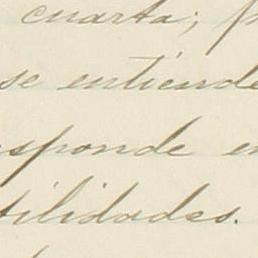 cuarta; p
se entiende
sponde en
tilidades.